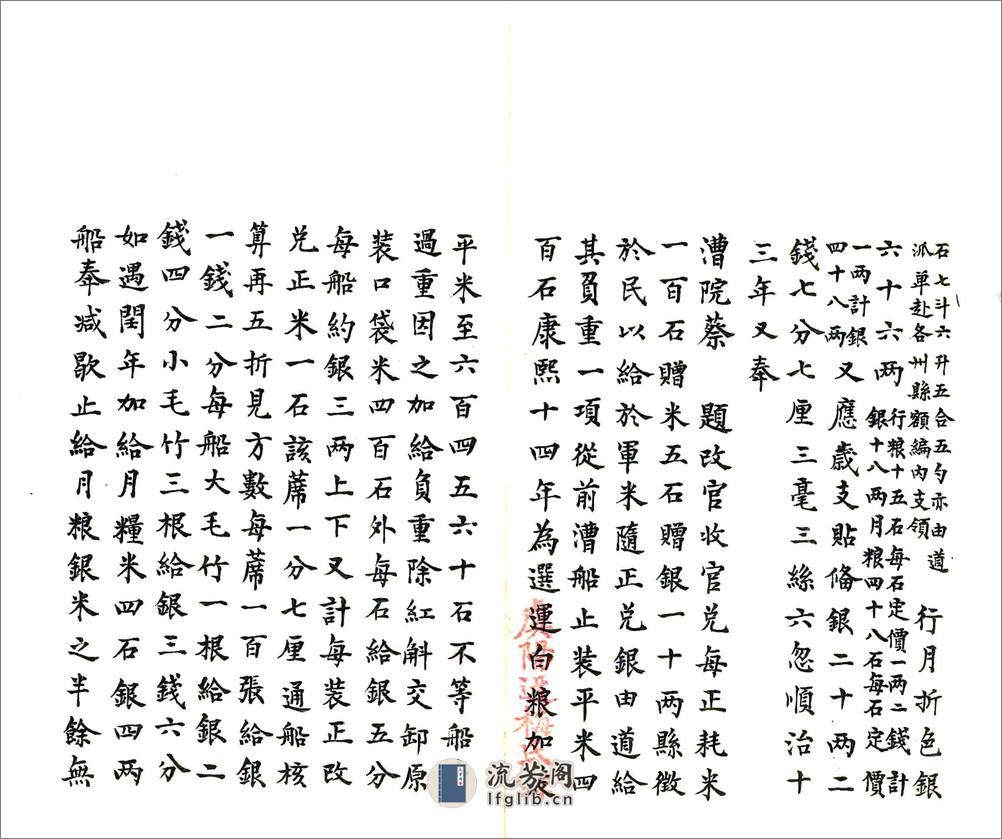 石七斗六升五合五勺亦由道
派單赴各州縣額編內支領
行月折色銀
六十六两
行粮十五石每石定價一两二錢計
銀十八两月粮四十八石每石定價
一两計銀
四十八两
又應歲支貼俻銀二十两二
錢七分七厘三毫三絲六忽順治十
三年又奉
漕院蔡　題改官收官兑每正耗米
一百石贈米五石贈銀一十两縣徵
於民以給於軍米隨正兑銀由道給
其負重一項從前漕船止装平米四
百石康熙十四年為選運白粮加
平米至六百四五六十石不等船
過重因之加給負重除紅斛交卸原
装口袋米四百石外每石給銀五分
每船約銀三两上下又計每装正改
兑正米一石該蓆一分七厘通船核
算再五折見方數每蓆一百張給銀
一錢二分每船大毛竹一根給銀二
錢四分小毛竹三根給銀三錢六分
如遇閏年加給月糧米四石銀四两
船奉减歇止給月粮銀米之半餘無
流芳阁
lfglib.cn